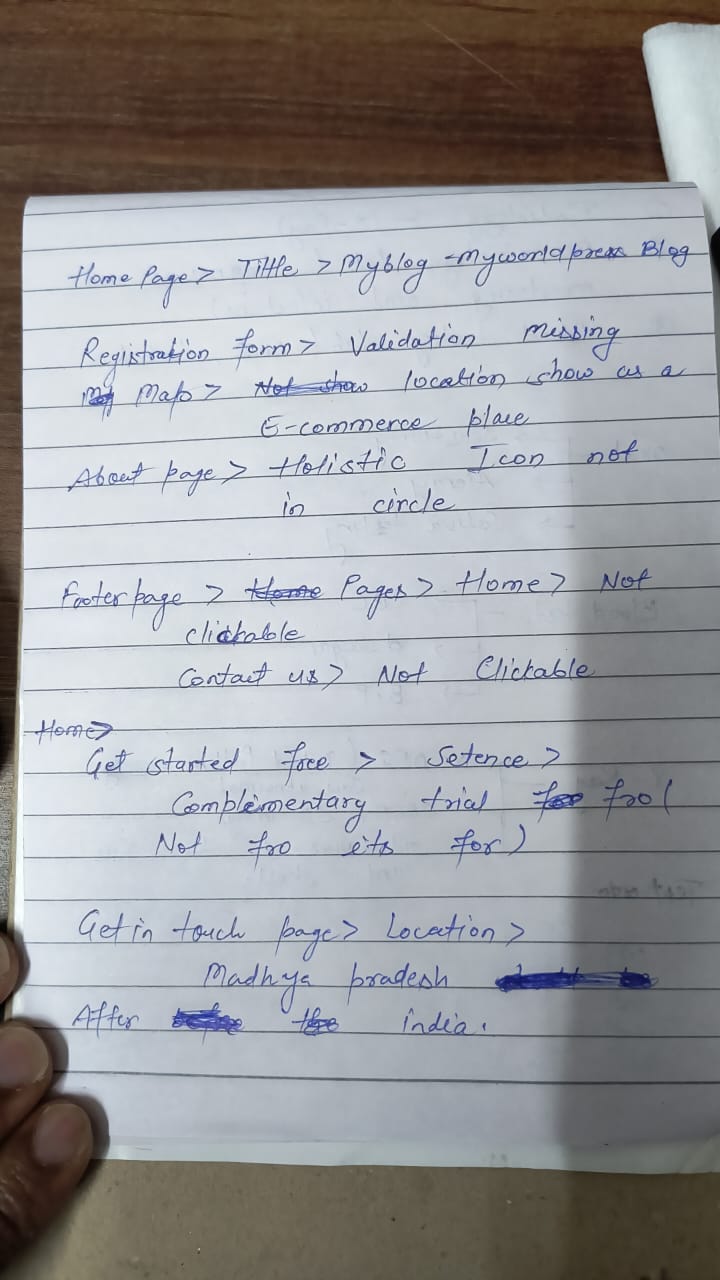 Home Page > Tittle > Myblog -myworldpress Blog
Registration form > Validation missing
Map > location show as a
E-commerce place
About page > Holistic Icon not
in circle
Footer page > Pages > Home > Not
clickable
Contact us > Not Clickable
Home >
Get started free > Setence >
Complementary trial fro (
Not fro its for)
Get in touch page > Location >
Madhya pradesh
After india.